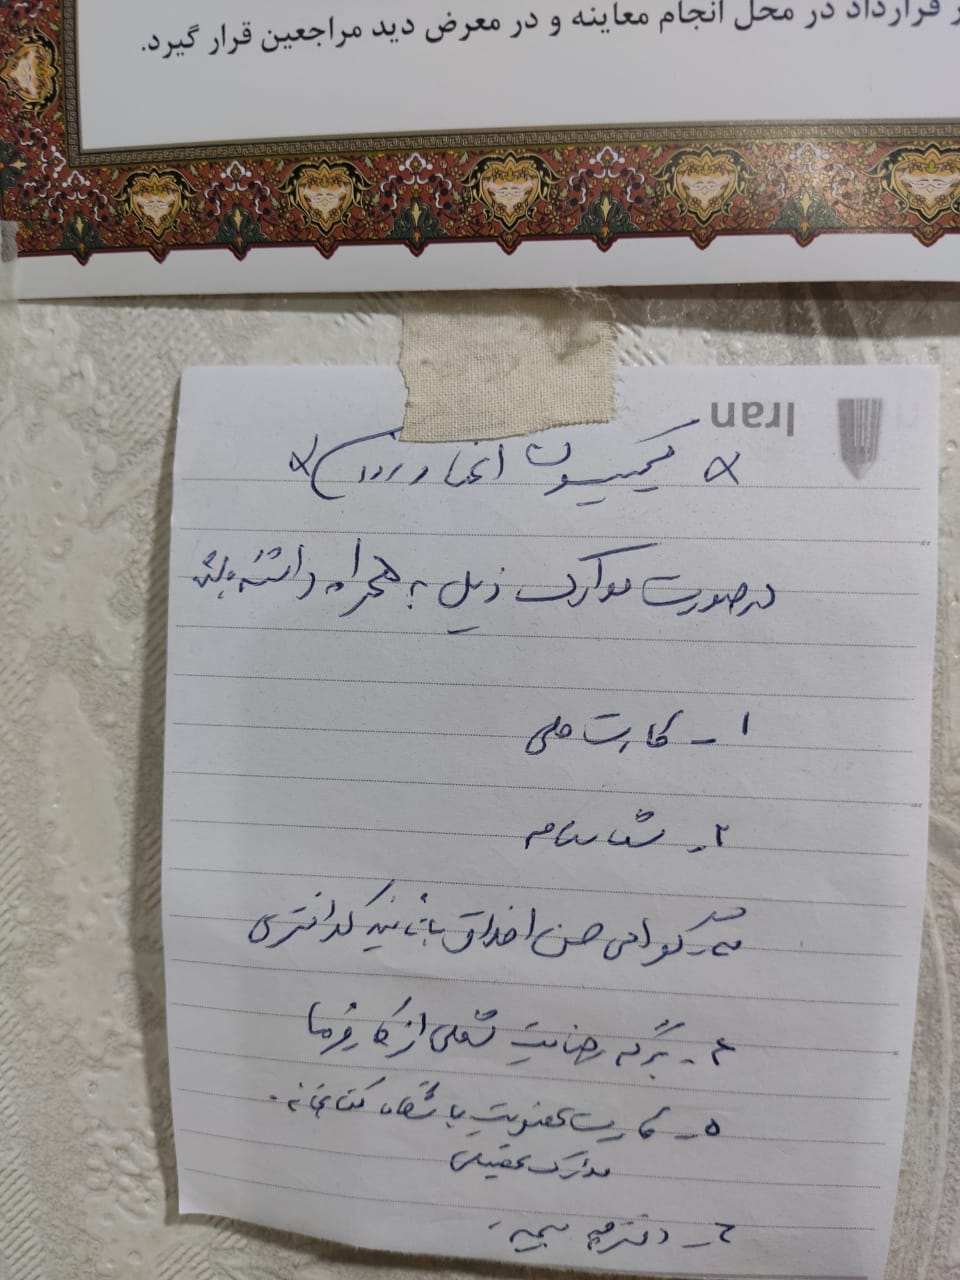 ر قرارداد در محل انجام معاینه و در معرض دید مراجعین قرار گیرد.
Iran
کمیسیون
درصورت مدارک ذیل به همراه داشته باشد
۱ـ کارت ملی
۲ـ شناسنامه
۳ـ گواهی حسن اخلاق با تائید کلانتری
۴ـ برگه رضایت شغلی از کارفرما
۵ـ کارت عضویت باشگاه، کتابخانه.
مدارک تحصیلی
دفترچه بیمه.